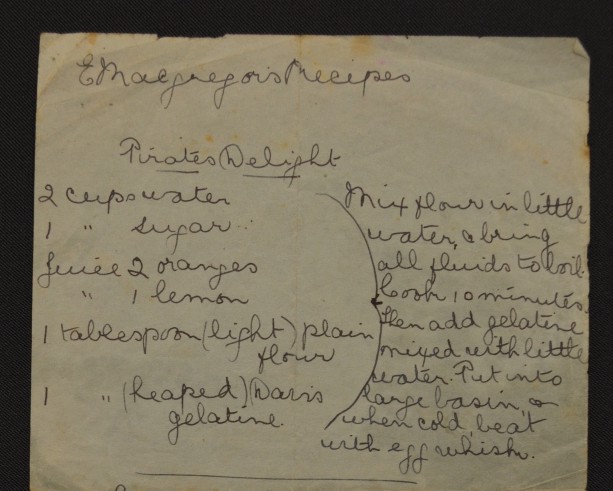 E Macgregor's Recipes
Pirates Delight
2 cups water
1 " sugar
Juice 2 oranges
" 1 lemon
1 tablespoon (light) plain
flour
1 " (heaped) Davis
gelatine.
Mix flour in little
water, & bring
all fluids to boil.
Cook 10 minutes.
Then add gelatine
mixed with little
water. Put into
large basin, &
when cold, beat
with egg whisk.